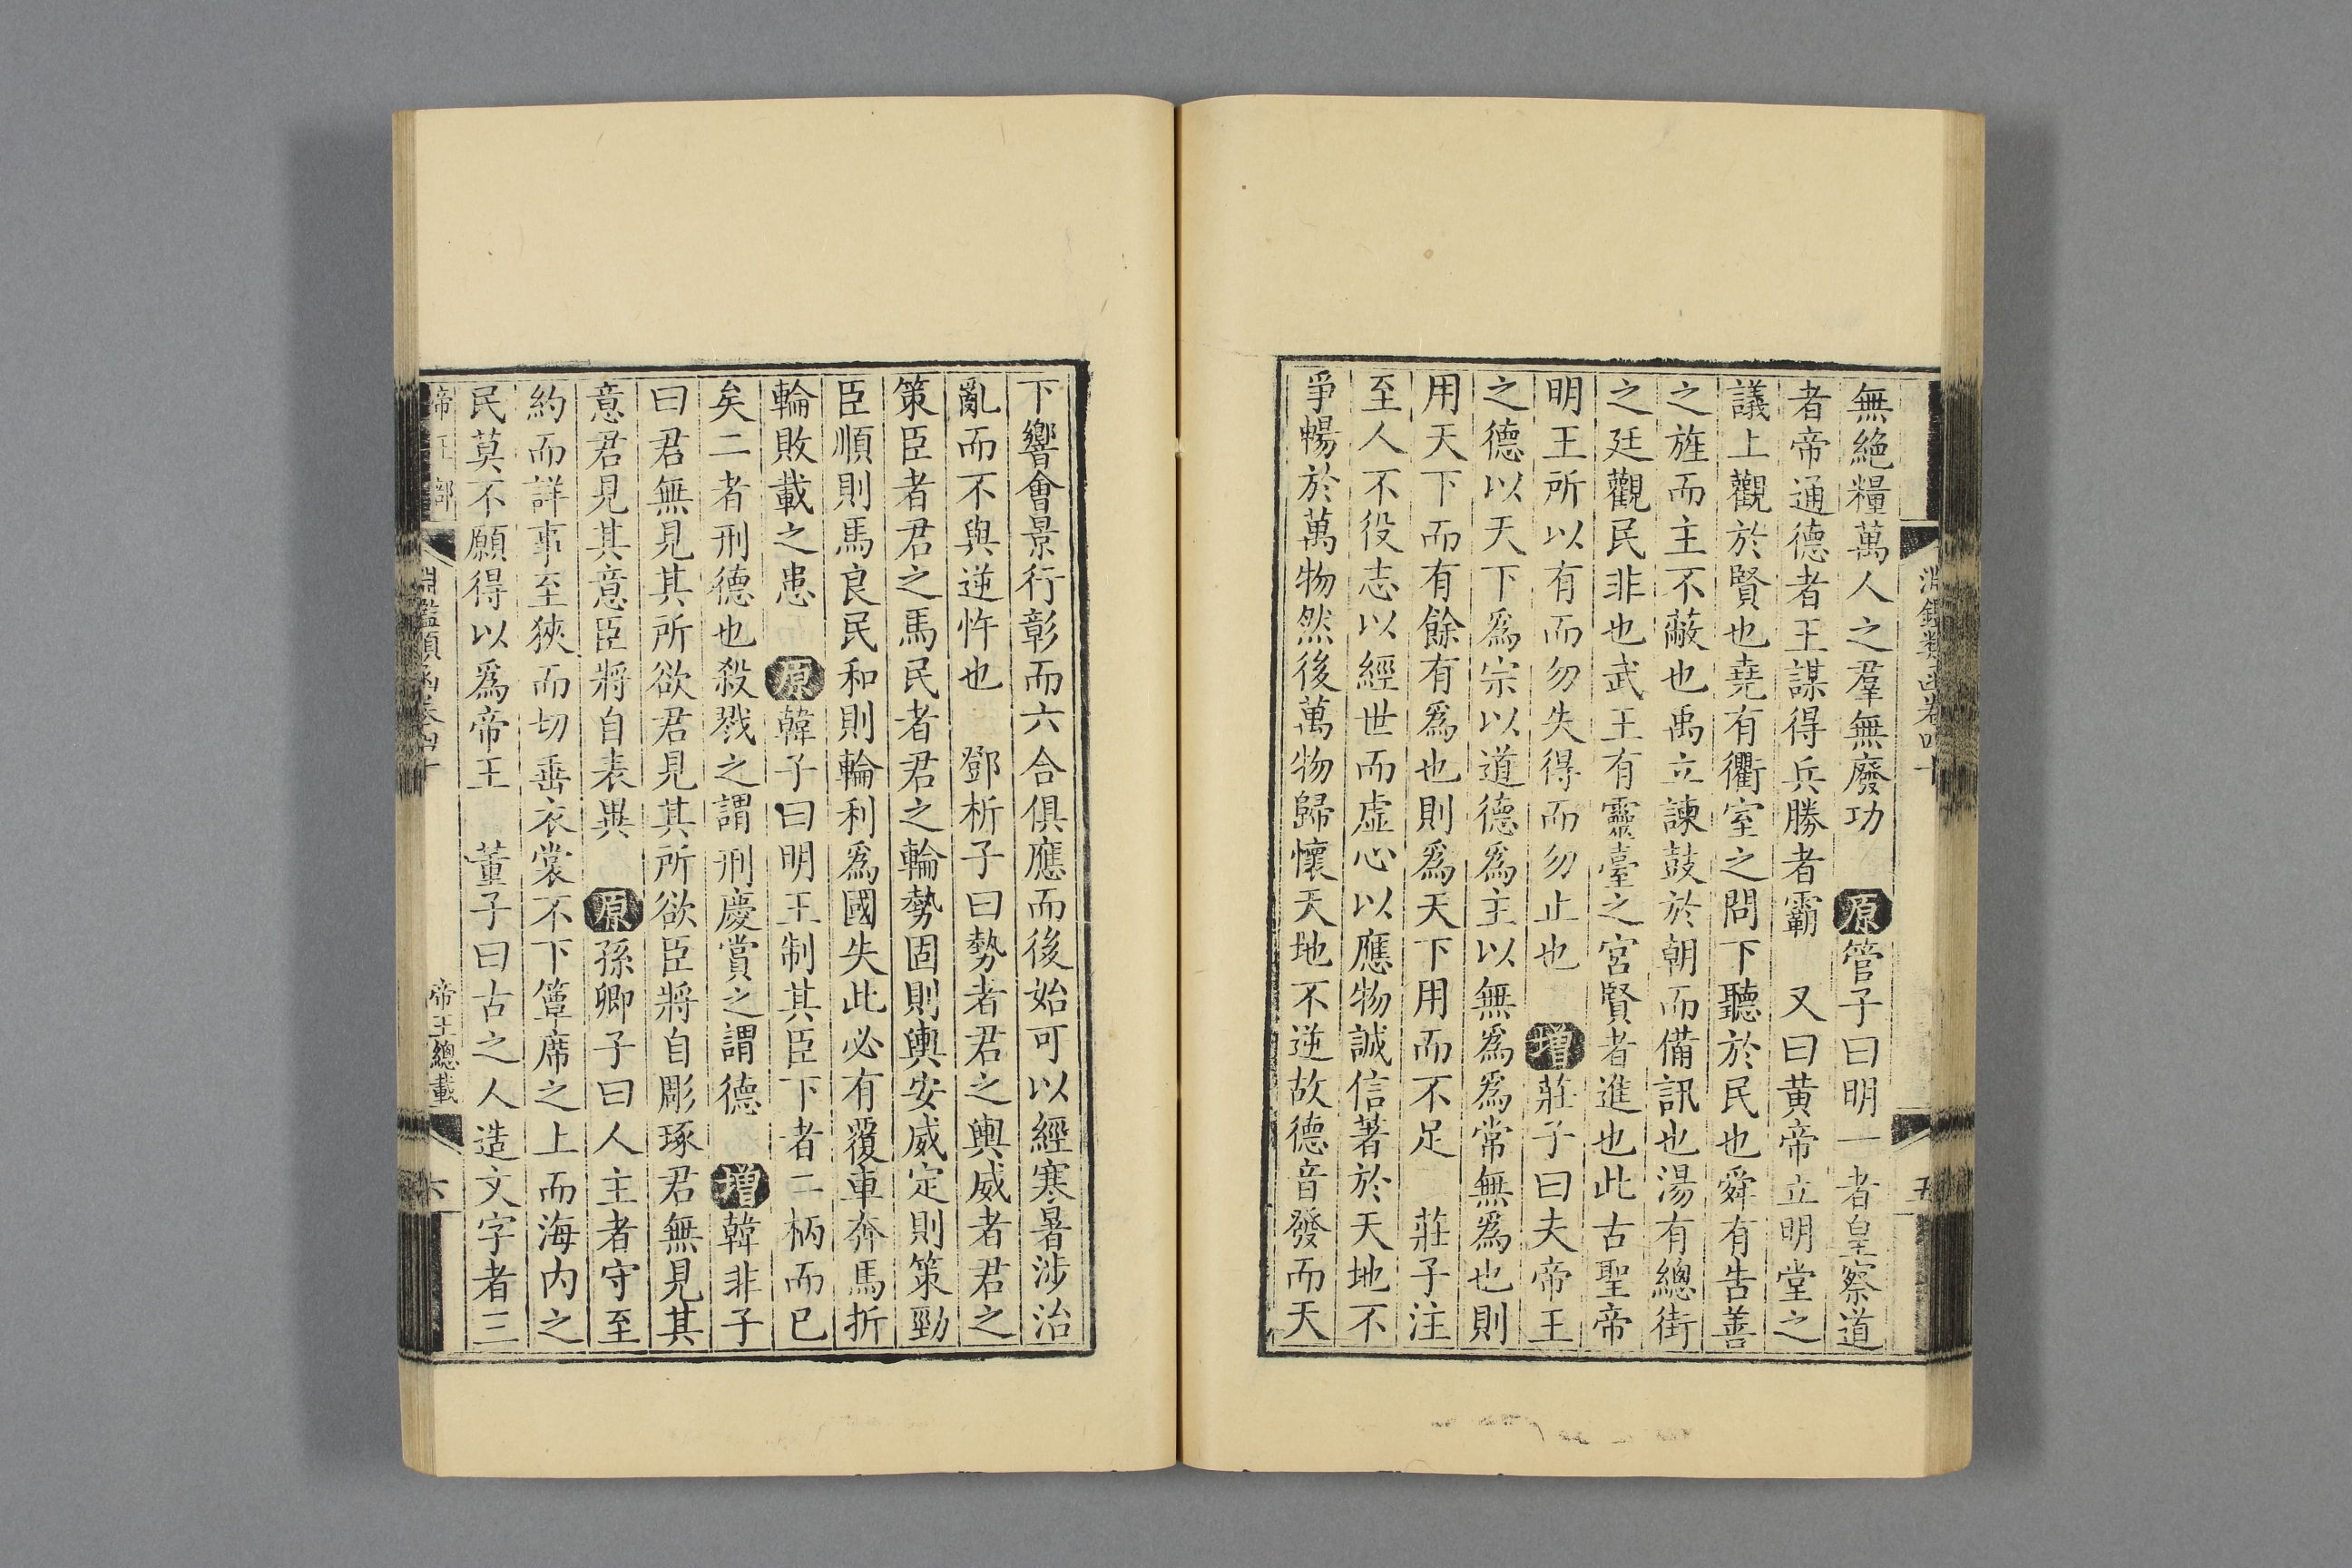 淵鑑類函卷四十
五
無絶糧萬人之羣無廢功 原管子曰明一者皇察道
者帝通德者王謀得兵勝者霸 又曰黄帝立明堂之
議上觀於賢也堯有衢室之問下聽於民也舜有告善
之旌而主不蔽也禹立諫鼓於朝而備訊也湯有總街
之廷觀民非也武王有靈臺之宮賢者進也此古聖帝
明王所以有而勿失得而勿止也 增莊子曰夫帝王
之德以天下爲宗以道德爲主以無爲爲常無爲也則
用天下而有餘有爲也則爲天下用而不足 莊子注
至人不役志以經世而虛心以應物誠信著於天地不
爭暢於萬物然後萬物歸懷天地不逆故德音發而天
下響會景行彰而六合俱應而後始可以經寒暑涉治
亂而不與逆忤也 鄧析子曰勢者君之輿威者君之
策臣者君之馬民者君之輪勢固則輿安威定則策勁
臣順則馬良民和則輪利爲國失此必有覆車奔馬折
輪敗載之患 原韓子曰明王制其臣下者二柄而已
矣二者刑德也殺戮之謂刑慶賞之謂德 增韓非子
曰君無見其所欲君見其所欲臣將自彫琢君無見其
意君見其意臣將自表異 原孫卿子曰人主者守至
約而詳事至狹而切垂衣裳不下簟席之上而海内之
民莫不願得以爲帝王 董子曰古之人造文字者三
帝王部
淵鑑類函卷四十
帝王總載
六